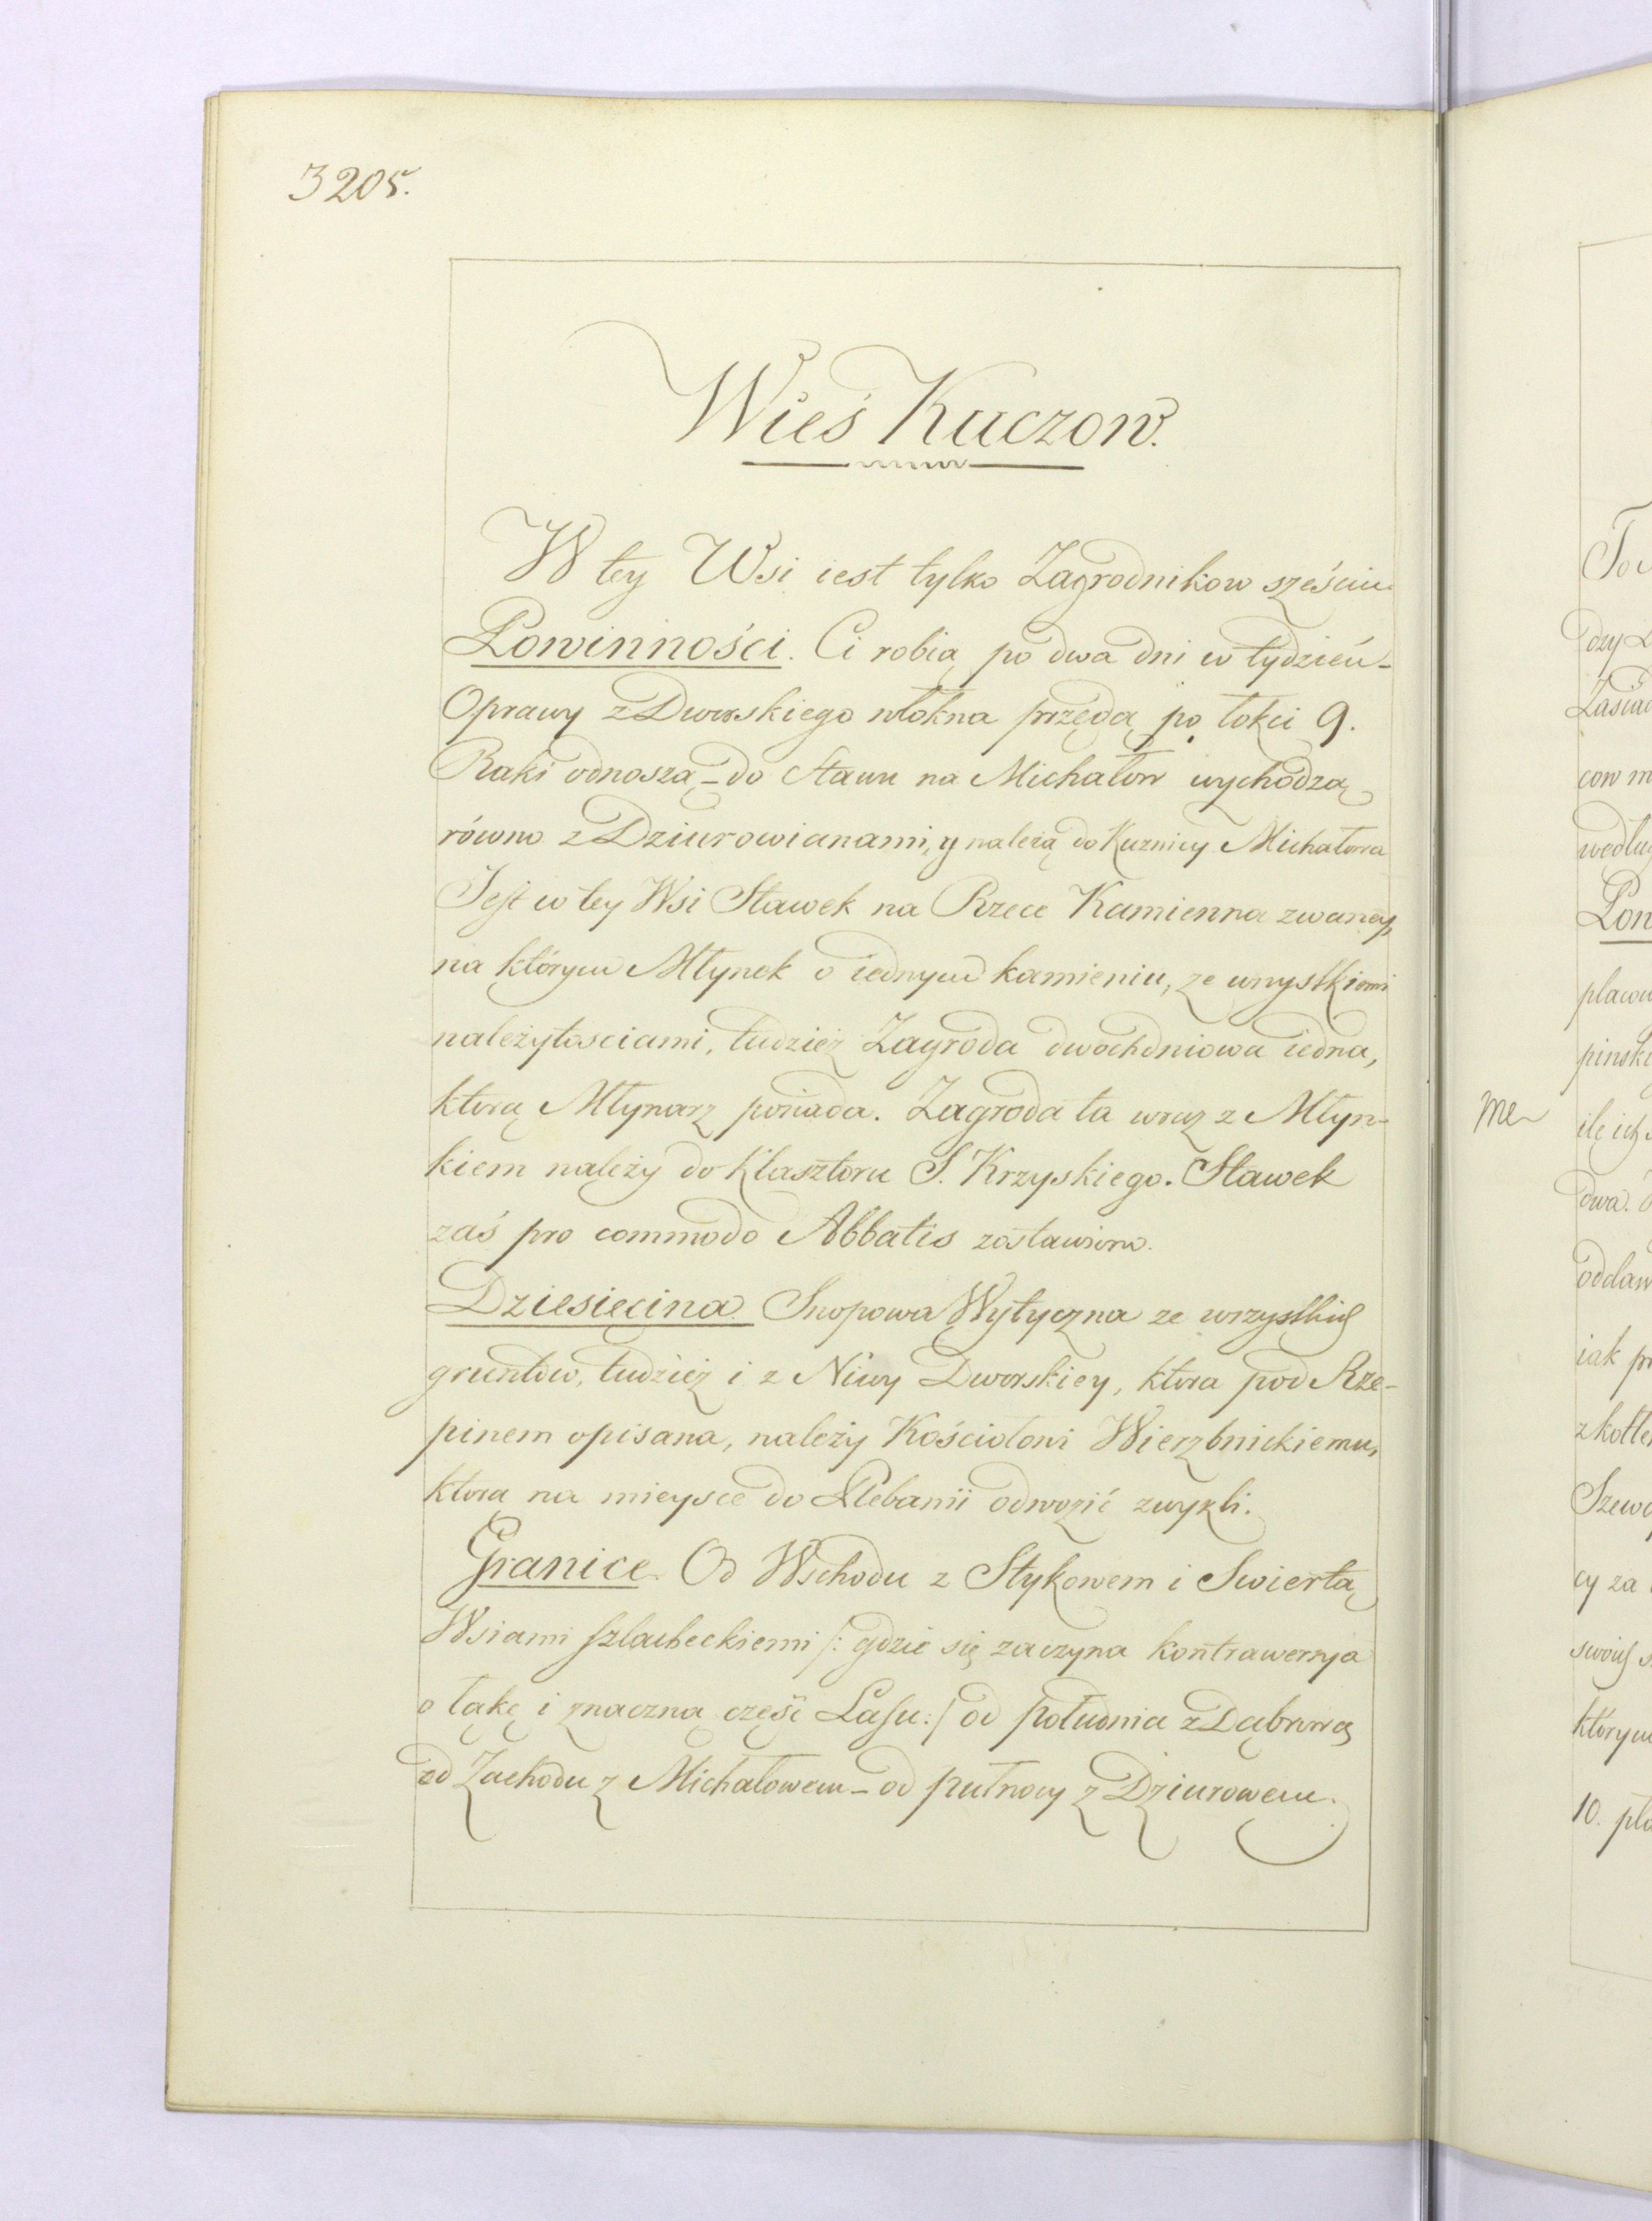 3205.
Wieś Kuczow.
W tey Wsi iest tylko Zagrodnikow sześciu
Powinności. Ci robią po dwa dni w tydzień –
Oprawy z Dworskiego włokna przędą po łokci 9.
Raki odnoszą – do Stawu na Michałow wychodzą
równo z Dziurowianami, y należą do Kuznicy Michałowa
Jest w tey Wsi Stawek na Rzece Kamienna zwaney,
na którym Młynek o iednym kamieniu, ze wszystkiemi
należytosciami, tudzież Zagroda dwochdniowa iedna,
ktorą Młynarz posiada. Zagroda ta wraz z Młyn-
kiem należy do Klasztoru S. Krzyskiego. Stawek
zaś pro commodo Abbatis zostawiono.
Dziesięcina. Snopowa Wytyczna ze wszystkich
gruntów, tudzież i z Niwy Dworskiey, ktora pod Rze-
pinem opisana, należy Kościołowi Wierzbnickiemu,
ktora na mieysce do Plebanii odwozić zwykli.
Granice. Od Wschodu z Stykowem i Swierta
Wsiami szlacheckiemi /: gdzie się zaczyna kontrawersya
o łąkę i znaczną część Lasu :/ od południa z Dąbrową
od Zachodu z Michałowem – od pułnocy z Dziurowem.
me
dwa.
iak
cy za
10.